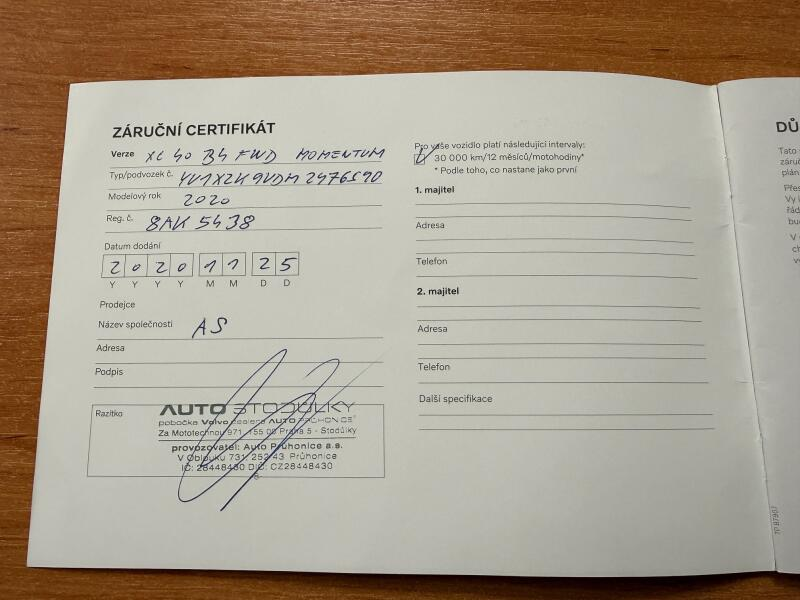 ZÁRUČNÍ CERTIFIKÁT
Verze XC 40 B4 FWD MOMENTUM
Typ/podvozek č. YV1XZK9VDM2476590
Modelový rok 2020
Reg. č. 8AK 5438
Datum dodání
2 0 2 0 1 1 2 5
Y Y Y Y M M D D
Prodejce
Název společnosti AS
Adresa
Podpis
Razítko
AUTO STODŮLKY
pobočka Volvo dealera AUTO PRŮHONICE
Za Mototechnou 971, 155 00 Praha 5 - Stodůlky
provozovatel: Auto Průhonice a.s.
V Oblouku 731, 252 43 Průhonice
IČ: 28448430 DIČ: CZ28448430
Pro vaše vozidlo platí následující intervaly:
30 000 km/12 měsíců/motohodiny*
* Podle toho, co nastane jako první
1. majitel
Adresa
Telefon
2. majitel
Adresa
Telefon
Další specifikace
DŮ
Tato
záruč
plán
Přes
Vy i
řád
bu
V
ch
v